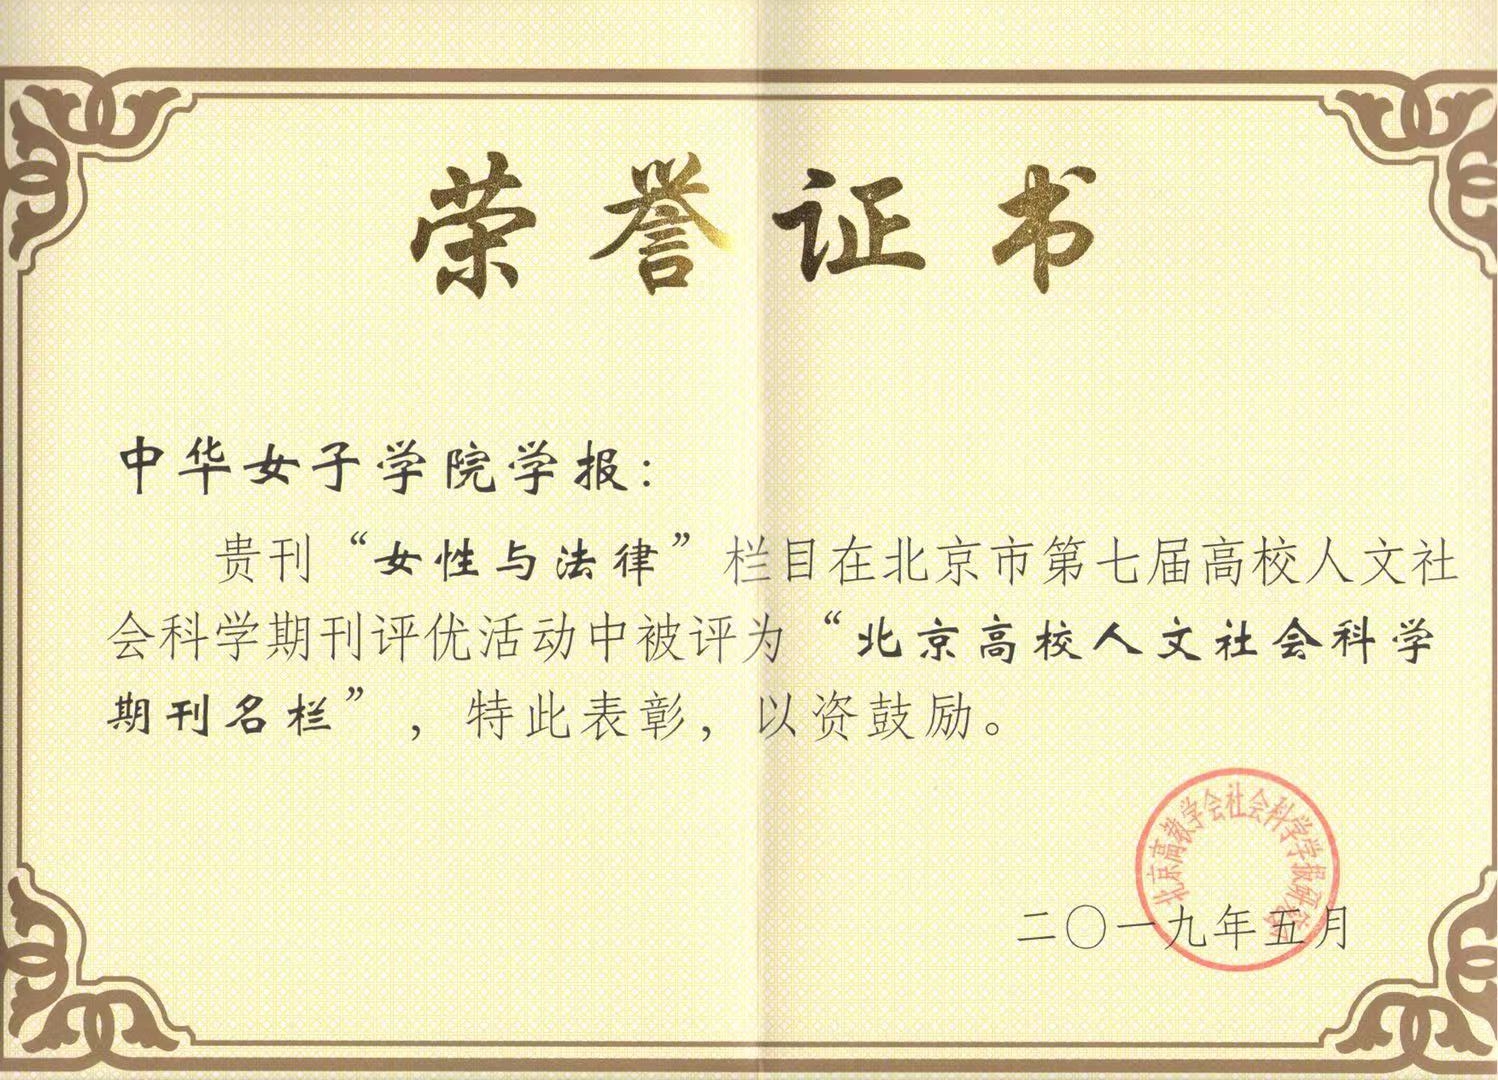 荣誉证书
中华女子学院学报：
贵刊“女性与法律”栏目在北京市第七届高校人文社
会科学期刊评优活动中被评为“北京高校人文社会科学
期刊名栏”，特此表彰，以资鼓励。
北京高教学会社会科学学报研究会
二〇一九年五月